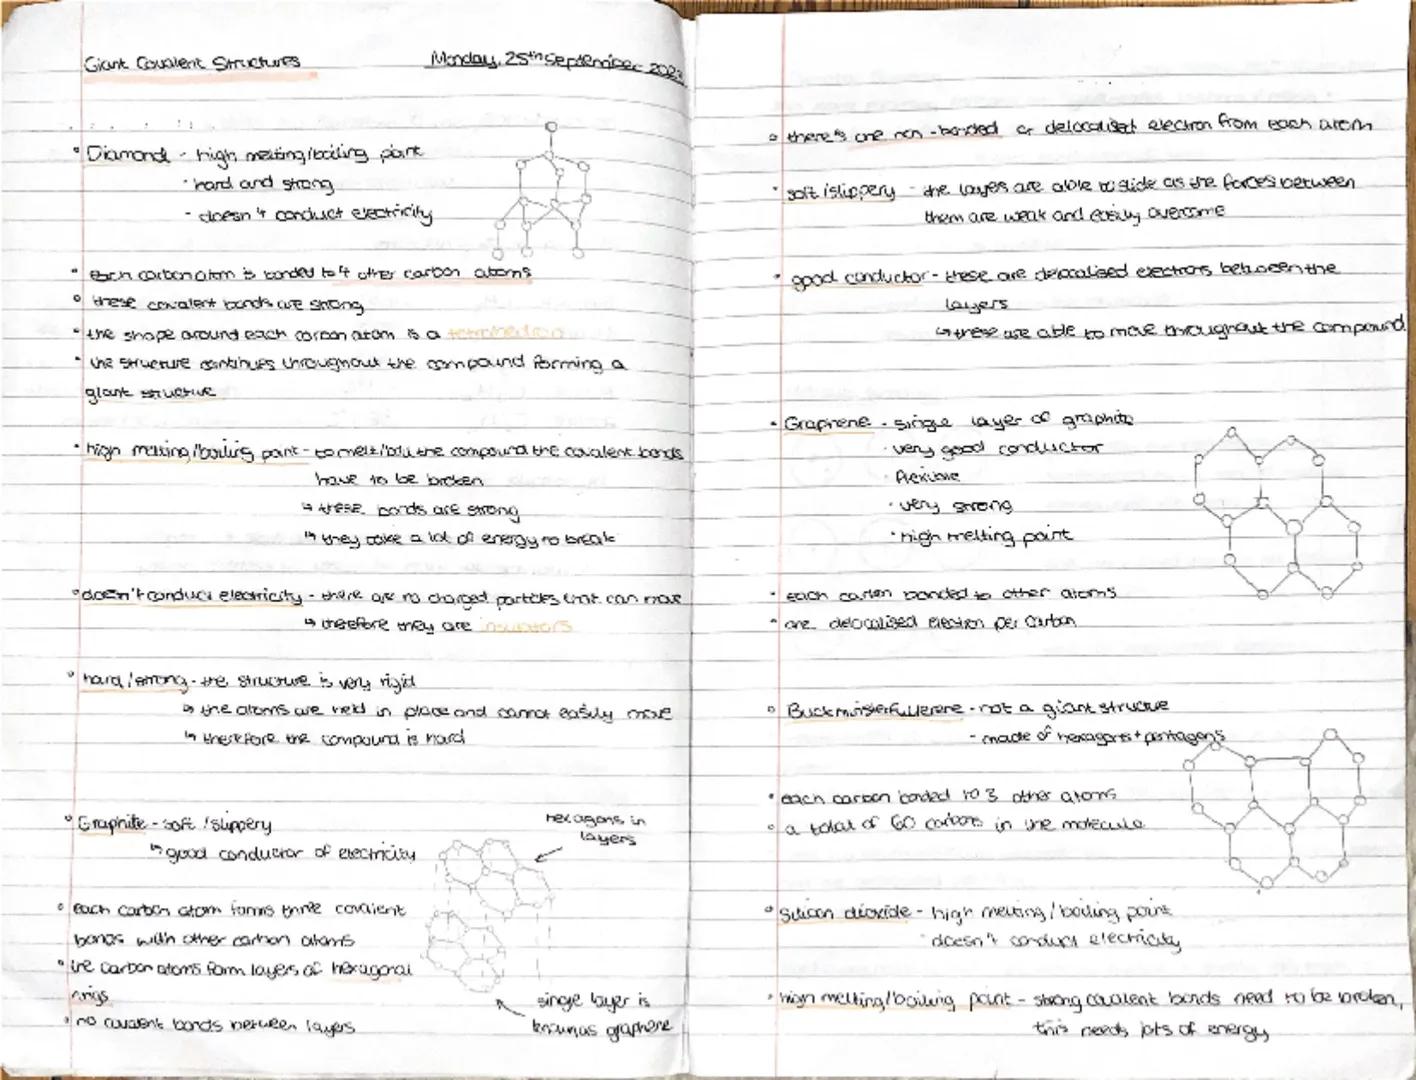 Giant Covalent Structures
Monday, 25th September 2023
• Diamond - high melting/boiling point
· hard and strong
- doesn't conduct electricity
• each carbon atom is bonded to 4 other carbon atoms
• these covalent bonds are strong
• the shape around each carbon atom is a tetrahedron
• the structure continues throughout the compound forming a
giant structure
• high melting/boiling point - to melt/boil the compound the covalent bonds
have to be broken
↳ these bonds are strong
↳ they take a lot of energy to break
• doesn't conduct electricity - there are no charged particles that can move
↳ therefore they are insulators
• hard/strong - the structure is very rigid
↳ the atoms are held in place and cannot easily move
↳ therefore the compound is hard
• Graphite - soft/slippery
↳ good conductor of electricity
hexagons in
layers
• each carbon atom forms three covalent
bonds with other carbon atoms
• the carbon atoms form layers of hexagonal
rings
• no covalent bonds between layers
single layer is
known as graphene
• there's one non-bonded or delocalised electron from each atom
• soft/slippery - the layers are able to slide as the forces between
them are weak and easily overcome
• good conductor - these are delocalised electrons between the
layers
↳ these are able to move throughout the compound
• Graphene - single layer of graphite
· very good conductor
· flexible
· very strong
· high melting point
• each carbon bonded to other atoms
• one delocalised electron per carbon
• Buckminsterfullerene - not a giant structure
- made of hexagons + pentagons
• each carbon bonded to 3 other atoms
• a total of 60 carbons in the molecule
• Silicon dioxide - high melting/boiling point
· doesn't conduct electricity
• high melting/boiling point - strong covalent bonds need to be broken,
this needs lots of energy